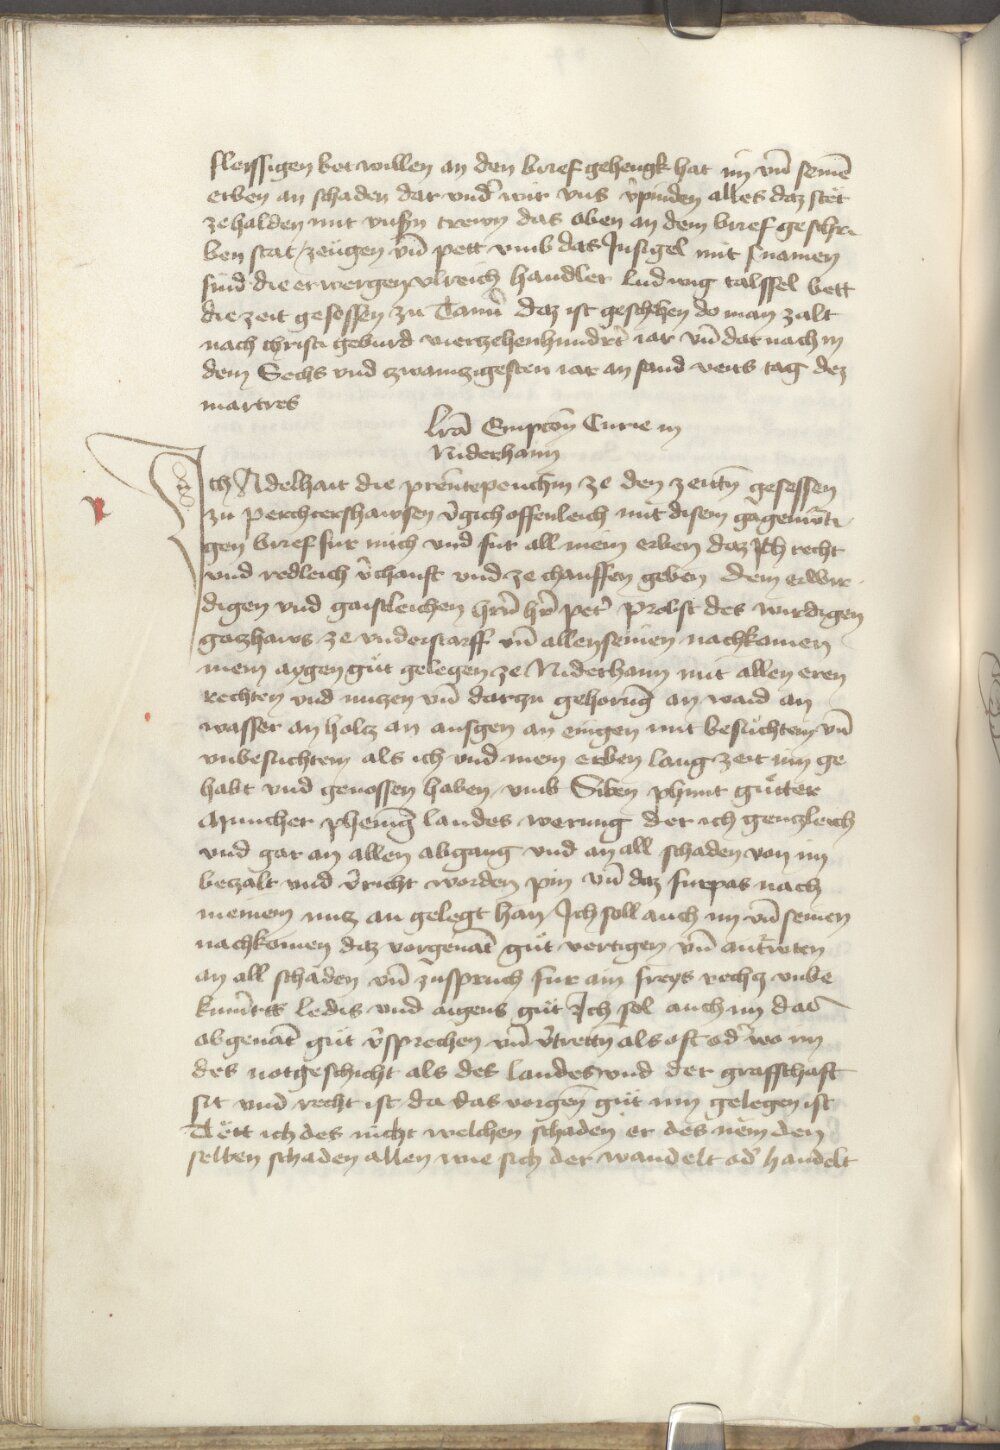 fleyssigen bet willen an den brief gehengk hat im vn̄ seinē
erben an schaden dar vnd̾ wir vns v̾pinden alles daz stët
ze halden mit vnsn̄ trewn das oben an dem brief geschri
ben stat / zeügen vn̄ pett vmb das Insigel mit namen
sind die erwergen vlreich handler ludwig talssel bett
die zeit gesessen zu Tann̄ daz ist geschehen do man zalt
nach christi geburd vierzehenhundrt̄ iar vn̄ dar nach in
dem Sechs vnd zwainzigesten iar an sand veits tag dez
martres
lrā Empcōn Curie in
Niderhaim
Ich Adelhait die
gesessen
zu perchtershawsen v̾gich offenleich mit disem gagenwr̄ti
gen brief fur mich vnd fur all mein erben daz Ich recht
vnd redleich v̾chauft vnd ze chauffen geben dem erwir
digen vnd gaistleichen hrn̄ hr̄ pet̾ probst des wirdigen
gotzhaws ze vnderstarff vn̄ allen seinen nachkomen
mein aygen güt gelegen ze Niderhaim mit allen eren
rechten vnd nuczen vn̄ darzu gehorūg an waid an
wasser an holcz an ausgen an eingen mit besüchtem vn̄
vnbesuchtem als ich vnd mein erben lang zeit inn ge
habt vnd genossen haben vmb Siben phunt gütter
Muncher phenīg landes werung der ich genczleich
vnd gar an allen abgang vnd an all schaden von im
beczalt vnd v̾richt worden pin vn̄ daz furpas nach
meinem nutz an gelegt han / Ich soll auch im vn̄ seinen
nachkomen daz vorgenāt güt vertigen vn̄ antwrten
an all schaden vn̄ zuspruch fur ain freys rechcz vnbe
kum̄rts ledis vnd aigens güt Ich sol auch im daz
obgenāt güt v̾sprechen vn̄ v̾tretty als oft od̾ wo im
des notgeschicht als des landes vnd der grafschaft
sit vnd recht ist da das vorgen̄ güt inn gelegen ist
Tëtt ich des nicht welchen schaden er des nem den
selben schaden allen wie sich der wandelt od̾ handelt